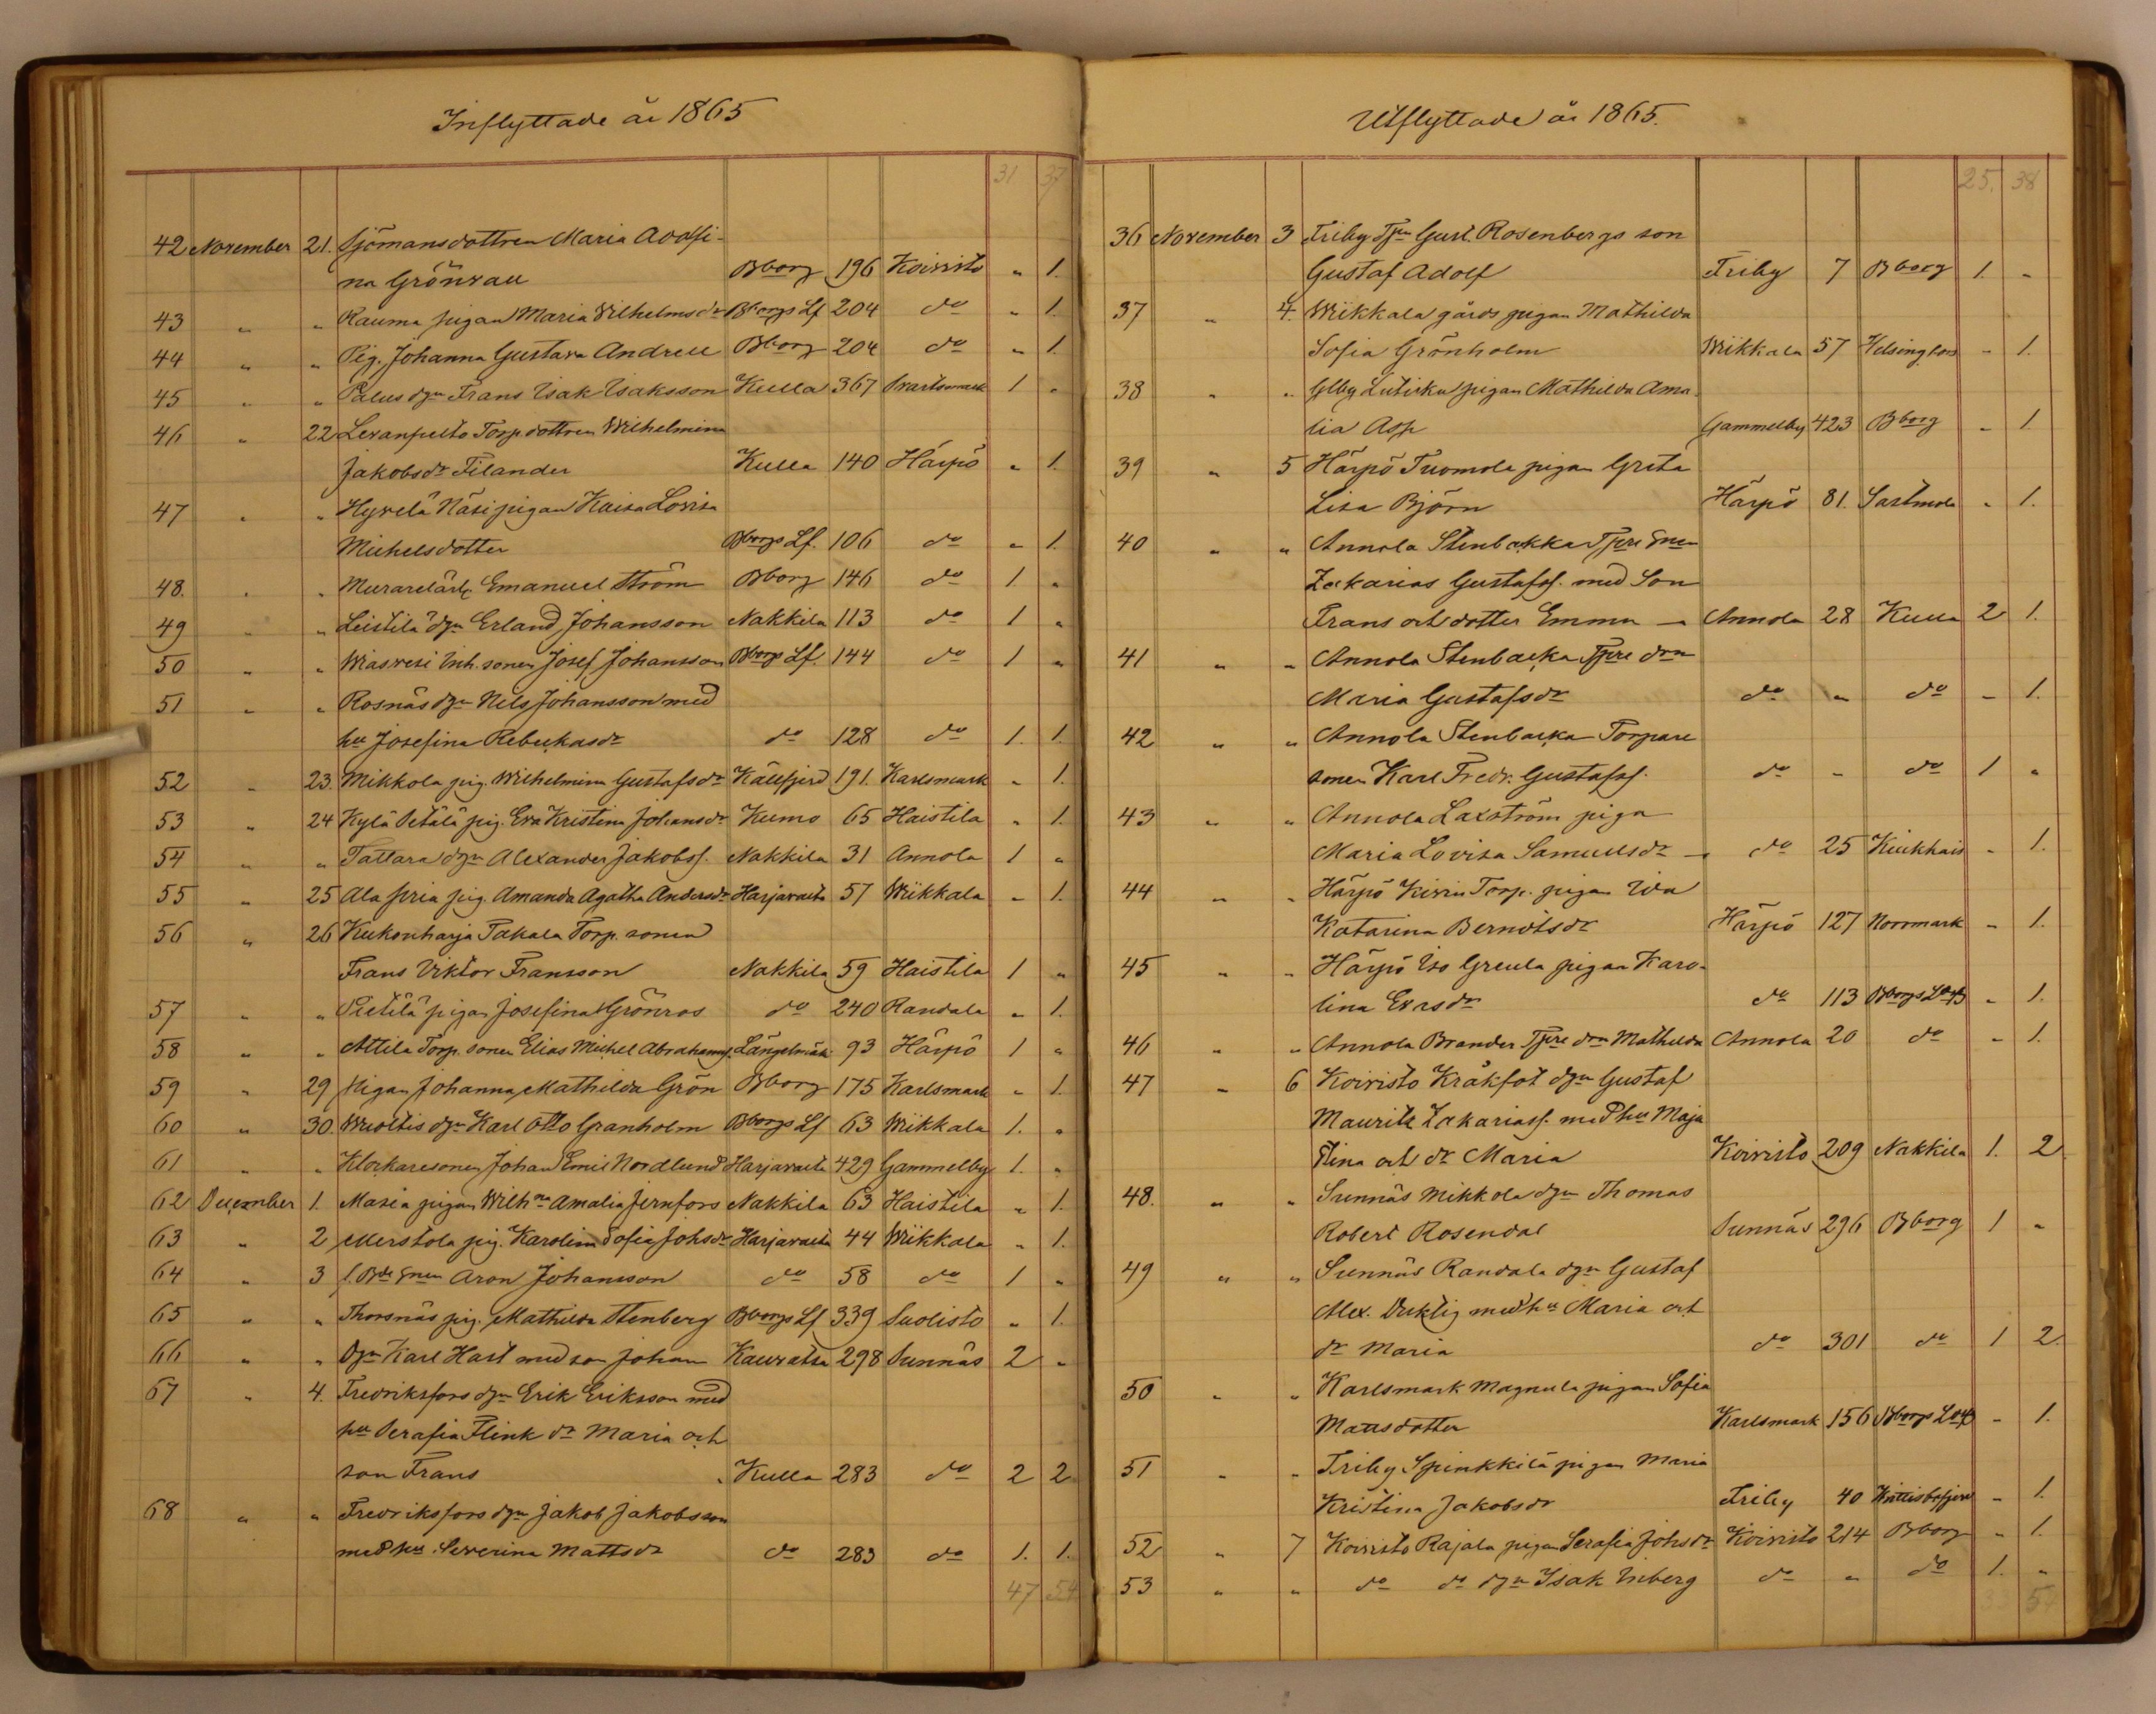 Inflyttade år 1865
31 37
42 November 21. Sjömansdottren Maria Adolfi-
na Grönvall Bborg 196 Koivisto " 1.
43 " " Rauma pigan Maria Wilhelmsdr Bborgs Lf 204 do " 1.
44 " " Pig. Johanna Gustava Andrell Bborg 204 do " 1.
45 " " Palus dgn Frans Isak Isaksson Kulla 367 Svartsmark 1 "
46 " 22 Levanpelto Torp. dottren Wilhelmina
Jakobsdr Filander Kulla 140 Härpö " 1.
47 " " Hyvelä Näsi pigan Kaisa Lovisa
Michelsdotter Bborgs Lf. 106 do " 1.
48. " " Murarelärl. Emanuel Ström Bborg 146 do 1 "
49 " " Leistilä dgn Erland Johansson Nakkila 113 do 1 "
50 " " Wiasvesi Inh. sonen Josef Johansson Bborgs Lf. 144 do 1 "
51 " " Rosnäs dgn Nils Johansson med
hu Josefina Rebeckasdr do 128 do 1. 1.
52 " 23. Mikkola pig. Wilhelmina Gustafsdr Källfjerd 191. Karlsmark " 1.
53 " 24 Kylä Petälä pig. Eva Kristina Johansdr Kumo 65 Haistila " 1.
54 " " Tattara dgn Alexander Jakobss. Nakkila 31 Annola 1 "
55 " 25 Ala pig. Amanda Agatha Andersdr Harjavalta 57 Wiikkala " 1.
56 " 26 Kukonharja Takala Torp. sonen
Frans Viktor Fransson Nakkila 59 Haistila 1 "
57 " " Pietilä pigan Josefina Grönros do 240 Randala " 1.
58 " " Attila Torp. sonen Elias Michel Abrahamss. Längelmäki 93 Härpö 1 "
59 " 29 Pigan Johanna Mathilda Grön Bborg 175 Karlsmark " 1.
60 " 30. Wuoltis dgn Karl Otto Granholm Bborgs Lf 63 Wiikkala 1. "
61 " " Klockaresonen Johan Emil Nordlund Harjavalta 429 Gammelby 1. "
62 December 1. Masia pigan Wilhna Amalia Jernfors Nakkila 63 Haistila " 1.
63 " 2 Merstola pig. Karolina Sofia Johsdr Harjavalta 44 Wiikkala " 1.
64 " 3 f. Bde Enen Aron Johansson do 58 do 1 "
65 " " Thorsnäs pig. Mathilda Stenberg Bborgs Lf 339 Suolisto " 1.
66 " " Dgn Karl Hast med son Johan Kauvatsa 298 Sunnäs 2 "
67 " 4. Fredriksfors dgn Erik Eriksson med
hu Serafia Flink dr Maria och
son Frans Kulla 283 do 2 2
68 " " Fredriksfors dgn Jakob Jakobsson
med hu Severina Mattsdr do 283 do 1. 1.
47 54
Utflyttade år 1865.
25. 38
36 November 3 Friby Tjn Gust. Rosenbergs son
Gustaf Adolf Friby 7 Bborg 1. "
37 " 4. Wiikkala gårds pigan Mathilda
Sofia Grönholm Wiikkala 57 Helsingfors " 1.
38 " " Glby Lutikka pigan Mathilda Ama
lia Asp Gammelby 423 Bborg " 1
39 " 5 Härpö Tuomola pigan Greta
Lisa Björn Härpö 81. Sastmola " 1.
40 " " Annola Stenbakka Tjere Enen
Zakarias Gustafss. med Son
Frans och dotter Emma Annola 28 Kulla 2 1.
41 " " Annola Stenbacka Tjere drn
Maria Gustafsdr do " do " 1.
42 " " Annola Stenbacka Torpare
sonen Karl Fredr. Gustafss. do " do 1 "
43 " " Annola Laxström piga
Maria Lovisa Samuelsdr do 25 Kiukkais " 1.
44 " " Härpö Kivin Torp. pigan Ida
Katarina Berndtsdr Härpö 127 Norrmark " 1.
45 " " Härpö Iso Greula pigan Karo-
lina Evasdr do 113 Bborgs Ldf " 1.
46 " " Annola Brander Tjere drn Mathilda Annola 20 do " 1.
47 " 6 Koivisto Kråkfot dgn Gustaf
Maurits Zakariass. med hu Maja
Stina och dr Maria Koivisto 209 Nakkila 1. 2
48. " " Sunnäs Mikkola dgn Thomas
Robert Rosendal Sunnäs 296 Bborg 1 "
49 " " Sunnäs Randala dgn Gustaf
Alex. Duktig med hu Maria och
dr Maria do 301 do 1 2.
50 " " Karlsmark Magnula pigan Sofia
Mattsdotter Karlsmark 156 Bborgs Ldf " 1.
51 " " Friby Spinkkilä pigan Maria
Kristina Jakobsdr Friby 40 Hvittisbofjerd " 1.
52 " 7 Koivisto Rajala pigan Serafia Johsdr Koivisto 214 Bborg " 1.
53 " " do do dgn Isak Inberg do " do 1. "